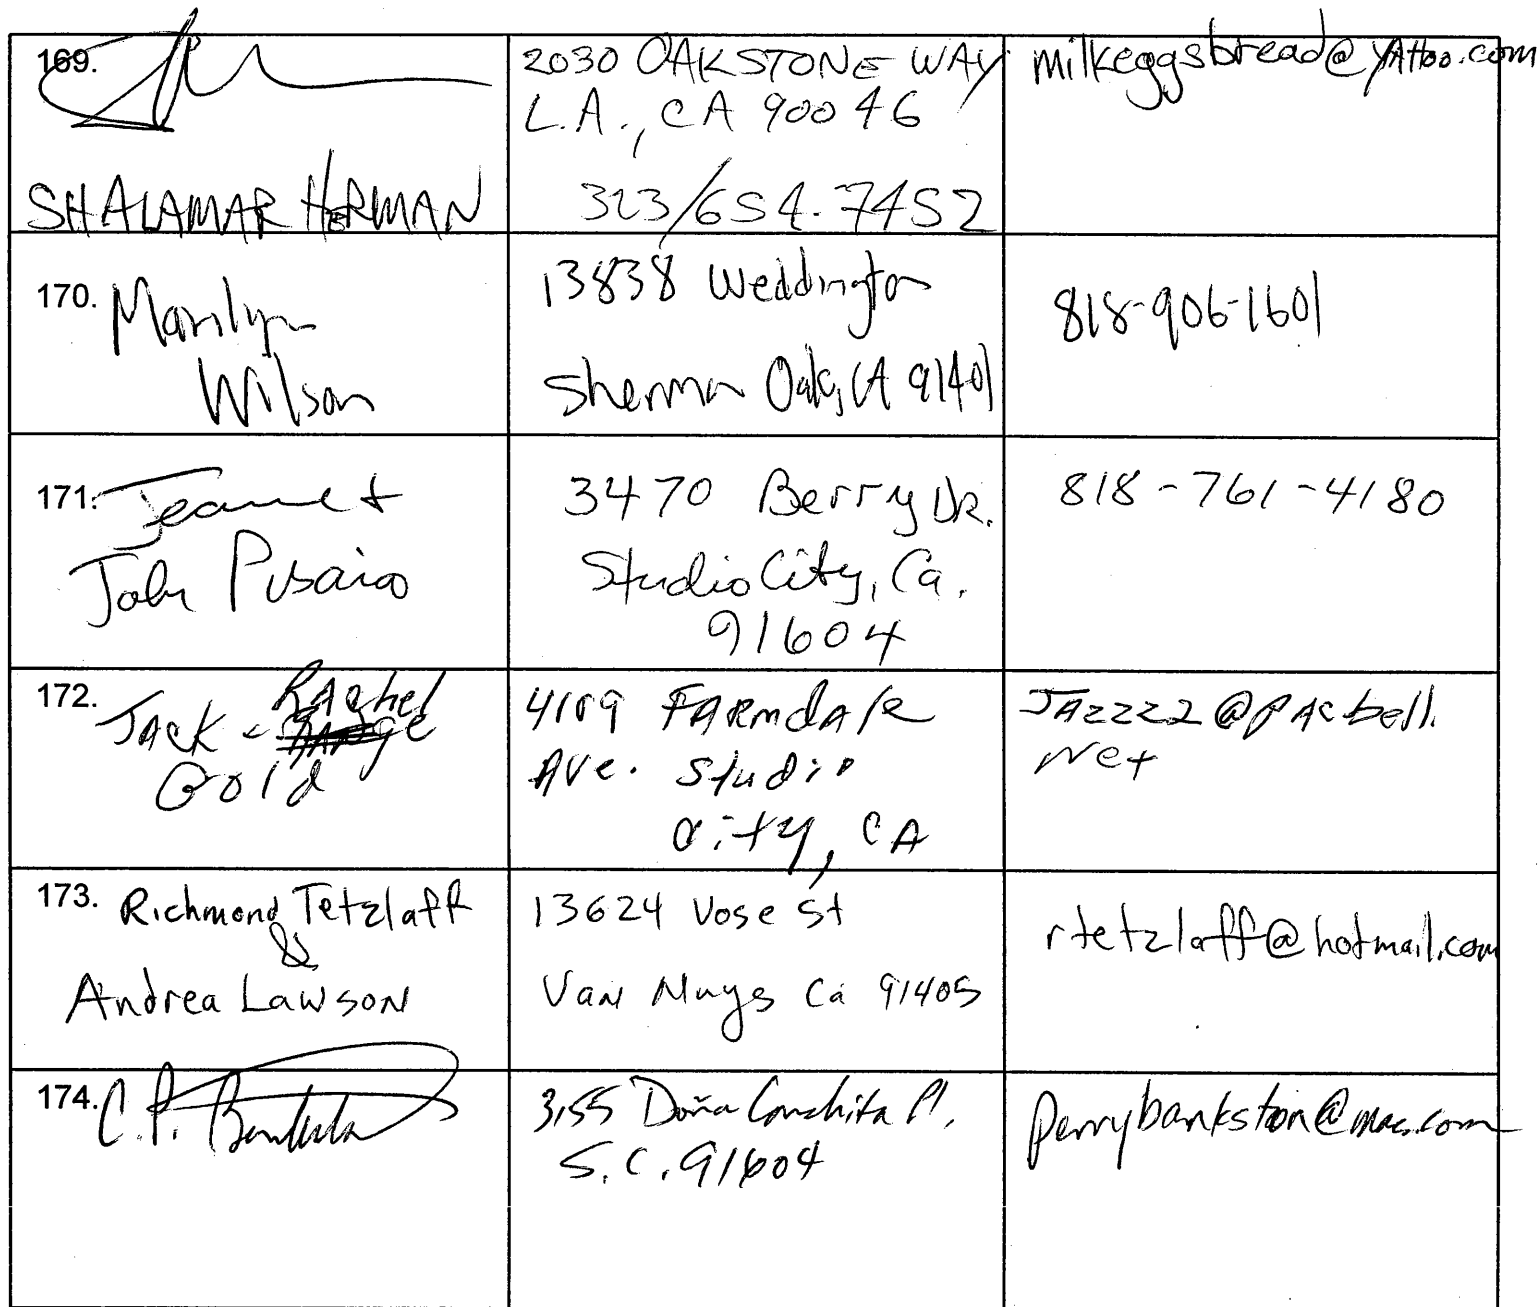 169.
SHALAMAR HERMAN
2030 OAKSTONE WAY
L.A., CA 90046
323/654.7452
milkeggsbread@yAHoo.com
170. Marilyn
Wilson
13838 Weddington
Sherman Oaks, CA 91401
818-906-1601
171. Jeanne +
John
3470 Berry DR.
Studio City, Ca.
91604
818-761-4180
172. JAck - RAchel
Gold
4109 FARmdAle
AVe. Studio
City, CA
JAzzz2@PAcbell.
Net
173. Richmond Tetzlaff
&
Andrea Lawson
13624 Vose St
Van Nuys Ca 91405
rtetzlaff@hotmail.com
174. C.P.
3155 Doña Conchita Pl.
S.C. 91604
perrybankston@mac.com